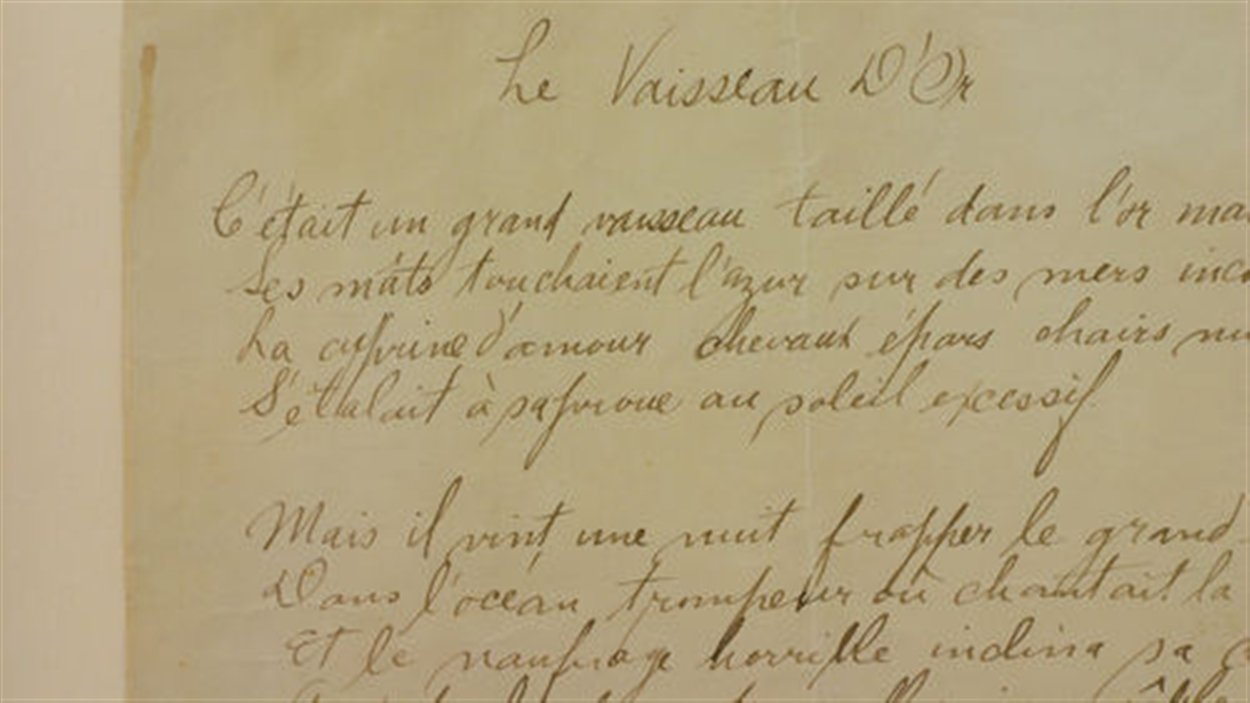 Le Vaisseau D'Or
C'était un grand vaisseau taillé dans l'or ma
Ses mâts touchaient l'azur sur des mers inco
La cyprine d'amour chevaux épars chairs nu
S'étalait à sa proue au soleil excessif
Mais il vint une nuit frapper le grand
Dans l'océan trompeur où chantait la
Et le naufrage horrible inclina sa c